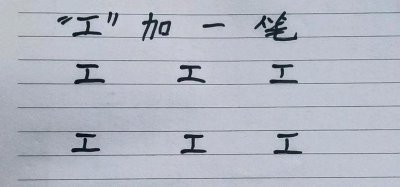 "工"加一笔
工 工 工
工 工 工